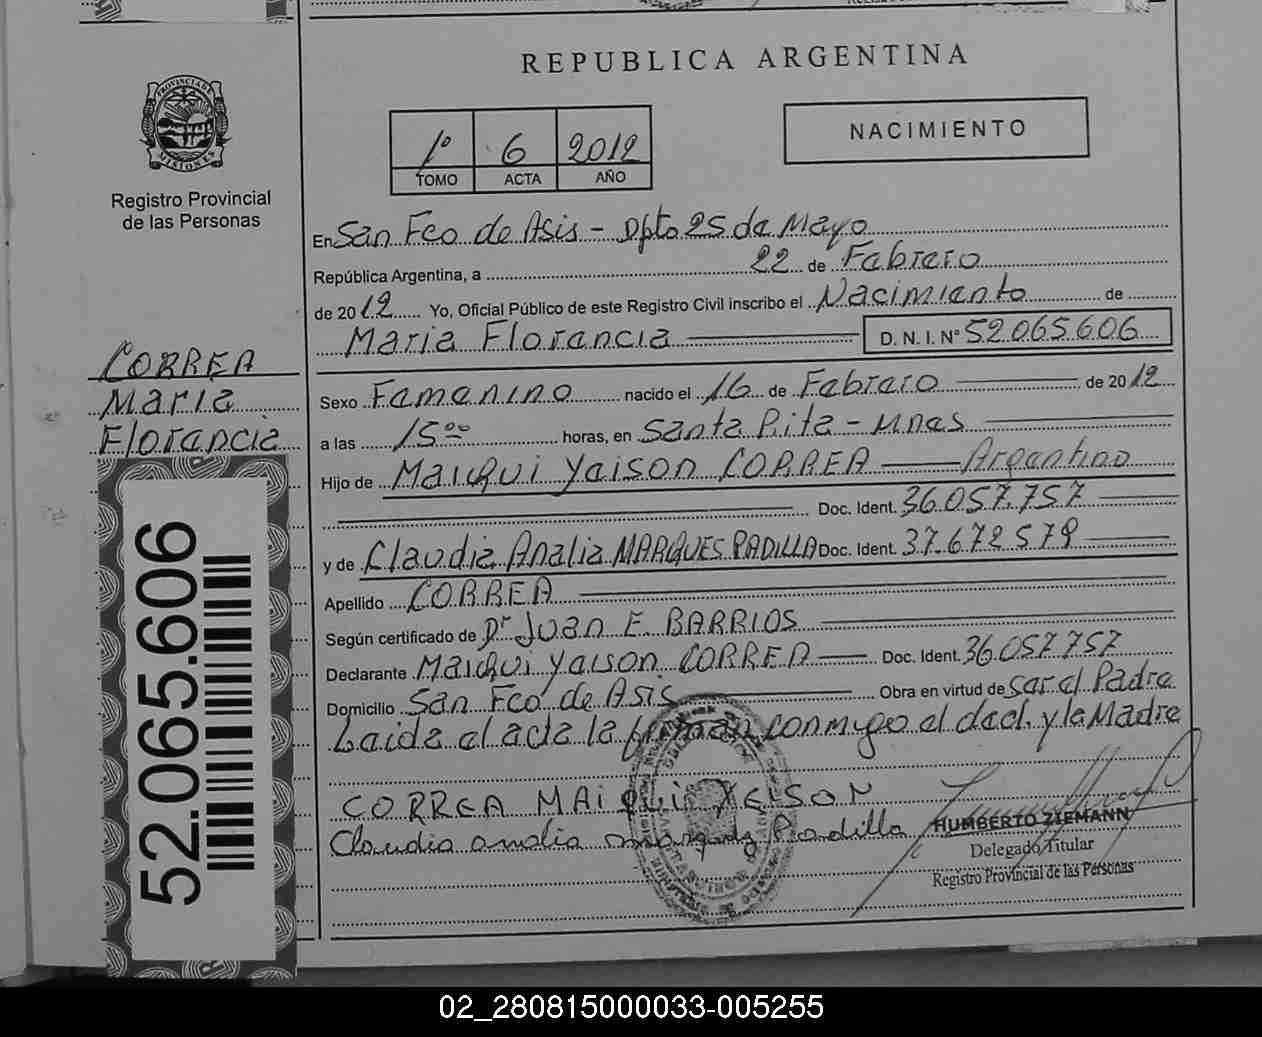 REPUBLICA ARGENTINA
PROVINCIA DE
MISIONES
Registro Provincial
de las Personas
1º 6 2012
TOMO ACTA AÑO
NACIMIENTO
En San Fco de Asis - Dpto 25 de Mayo
República Argentina, a 22 de Febrero
de 2012 Yo, Oficial Público de este Registro Civil inscribo el Nacimiento de
Maria Florencia D. N. I. Nº 52.065.606
CORREA
Maria
Florencia
Sexo Femenino nacido el 16 de Febrero de 2012
a las 15 ºº horas, en Santa Rita - Mnes
Hijo de Maiqui Yeison CORREA Argentino
Doc. Ident. 36.057.757
y de Claudia Analia MARQUES PADILLA Doc. Ident. 37.672.579
Apellido CORREA
Según certificado de Dr JUAN E. BARRIOS
Declarante Maiqui Yeison CORREA Doc. Ident. 36.057.757
Domicilio San Fco de Asis Obra en virtud de ser el Padre
Leida el acta la firman conmigo el decl. y la Madre
CORREA MAIQUI YEISON
Claudia analia marquez Padilla
HUMBERTO ZIEMANN
Delegado Titular
Registro Provincial de las Personas
52.065.606
02_280815000033-005255